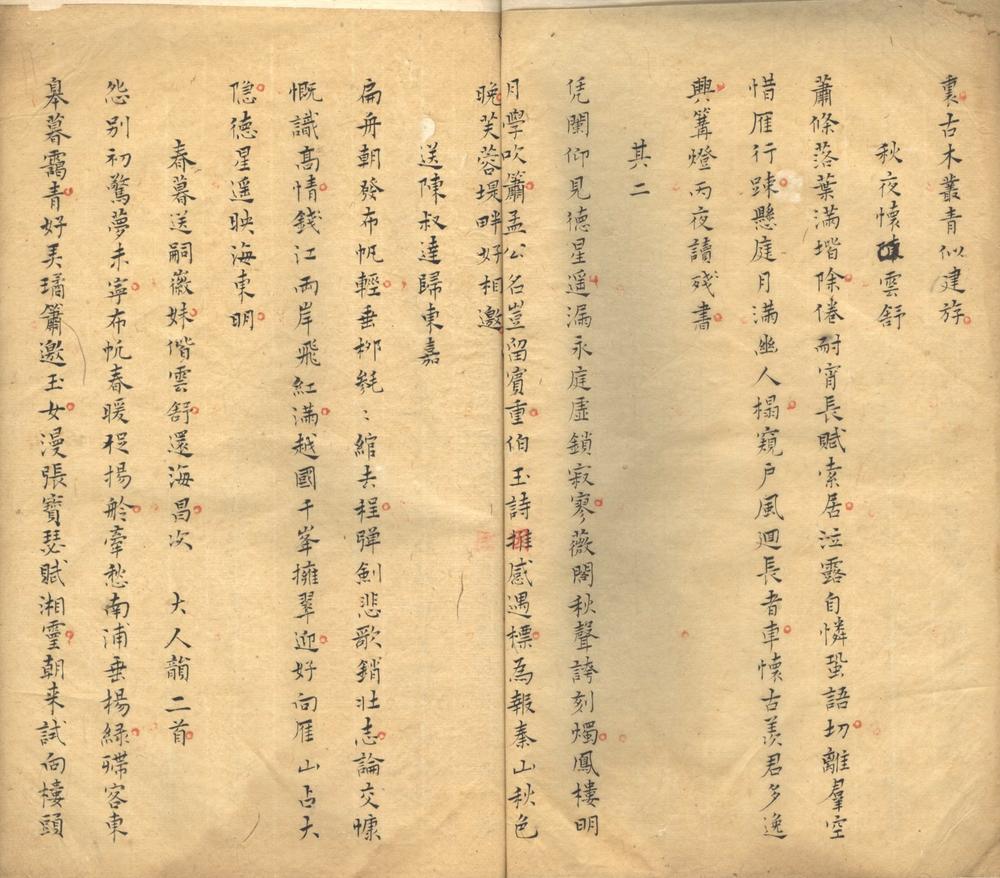 裏古木叢青似建旂
秋夜懷陳雲舒
蕭條落葉滿堦除倦耐宵長賦索居泣露自憐蛩語切離羣空
惜雁行踈懸庭月滿幽人榻窺戶風迴長者車懷古羨君多逸
興篝燈丙夜讀殘書
其二
凭闌仰見德星遥漏永庭虛鎖寂寥薇閣秋聲誇刻燭鳳樓明
月學吹簫孟公名豈留賓重伯玉詩推感遇標為報秦山秋色
晚芙蓉堤畔好相邀
送陳叔達歸東嘉
扁舟朝發布帆輕垂栁毿〻綰去程彈劍悲歌銷壯志論交慷
慨識高情錢江兩岸飛紅滿越國千峯擁翠迎好向雁山占大
隱德星遥映海東明
春暮送嗣薇妹偕雲舒還海昌次 大人韻二首
怨别初驚夢未寧布帆春暖促揚舲牽愁南浦垂楊緑殢客東
皋暮靄青好美璚簫邀玉女漫張寶瑟賦湘靈朝来試向樓頭